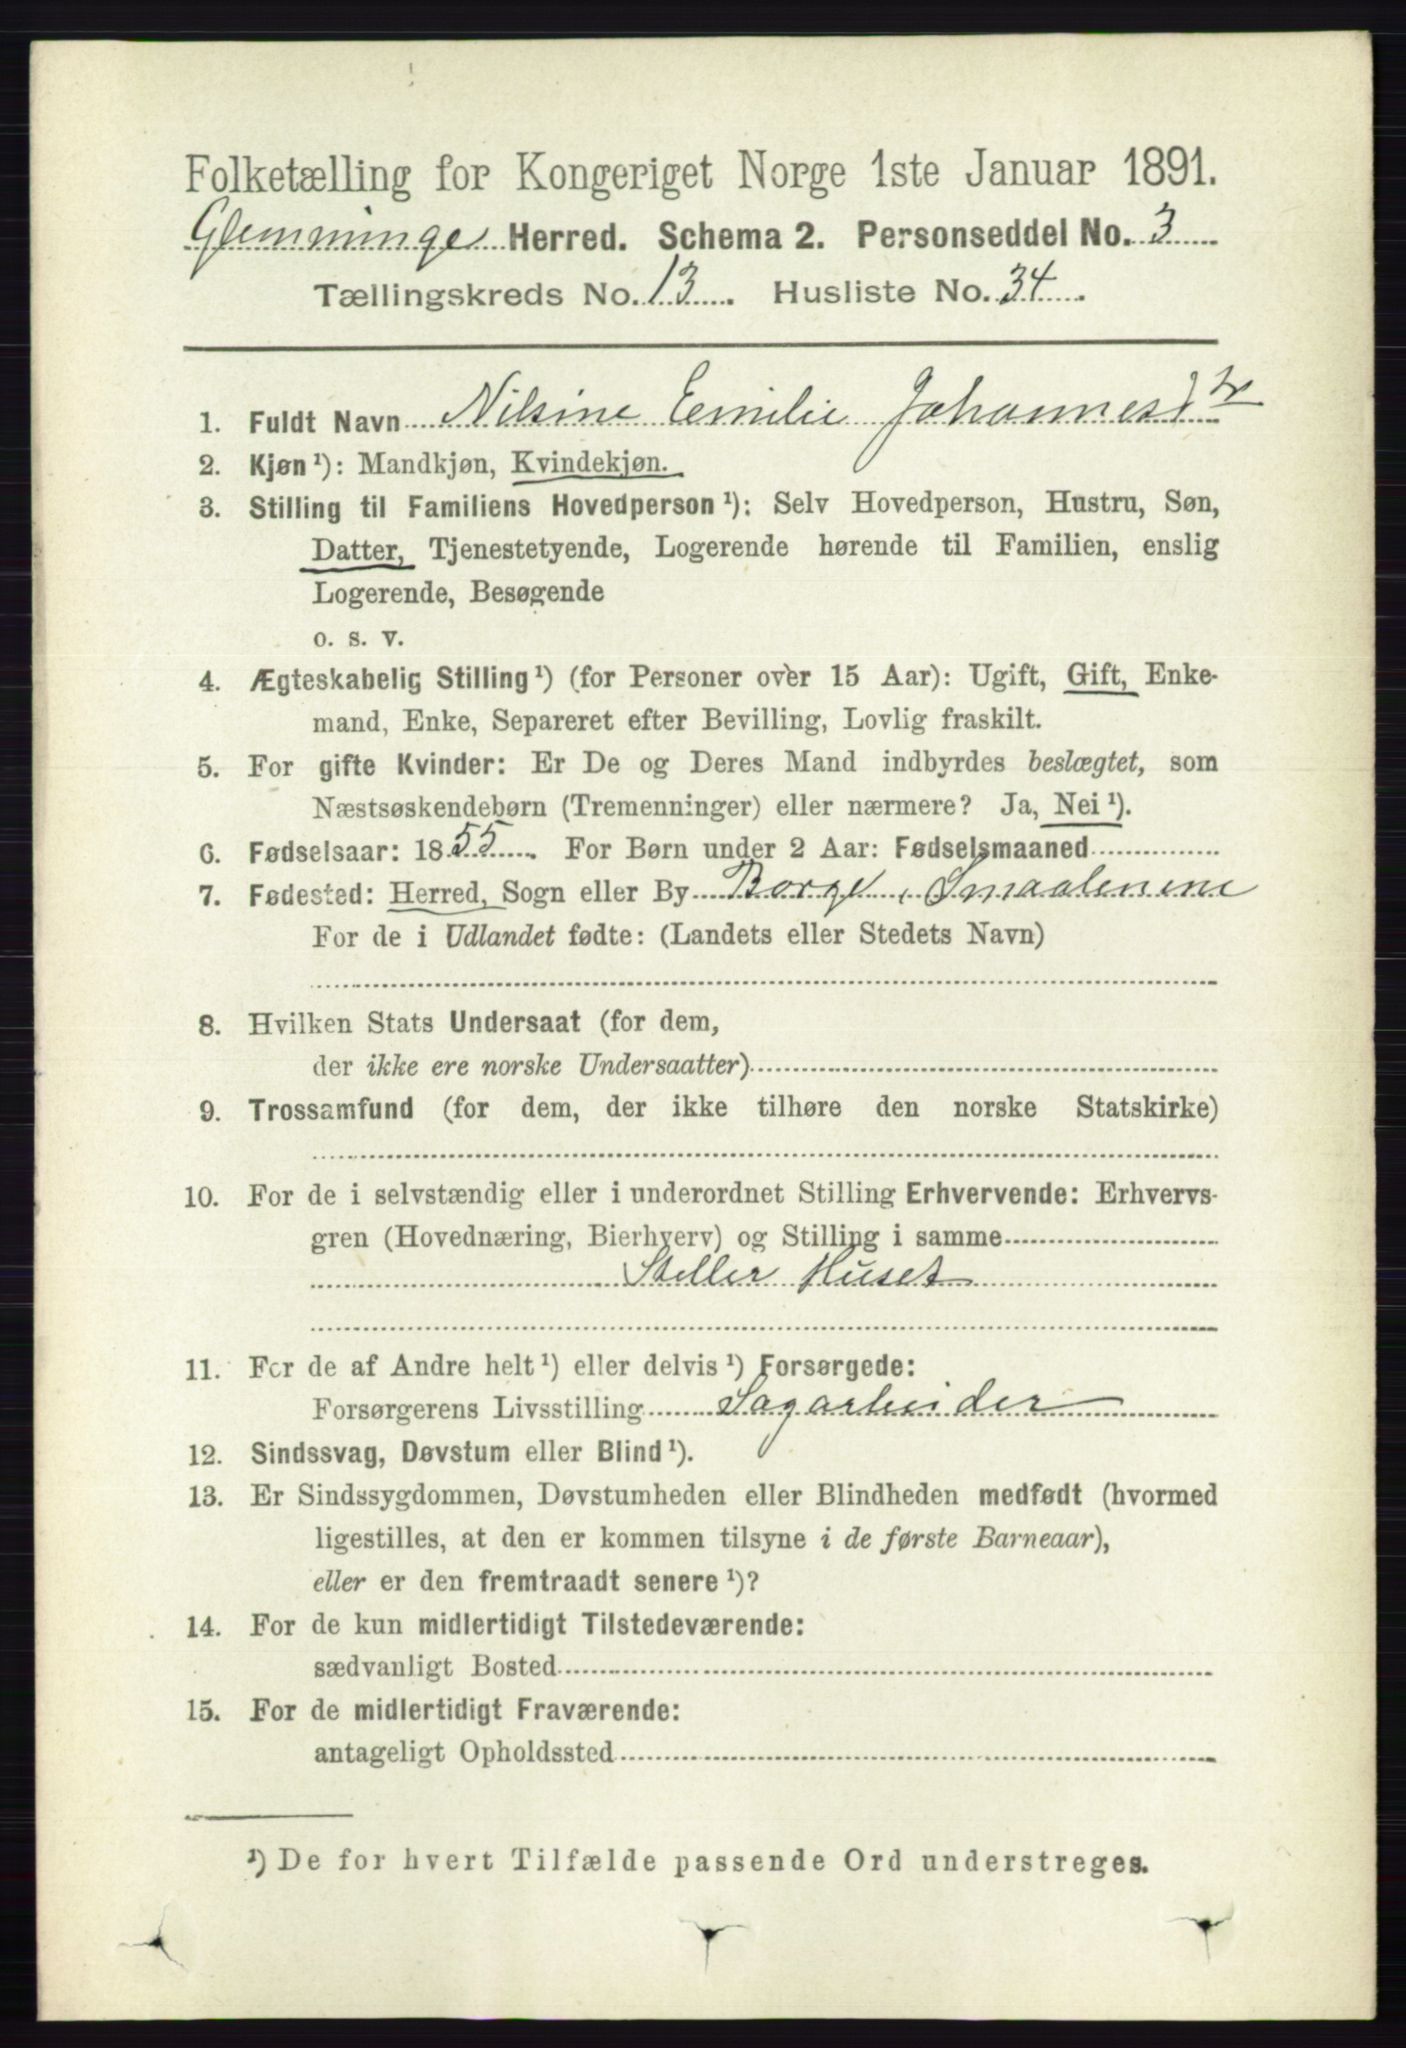 Folketælling for Kongeriget Norge 1ste Januar 1891.
Glemminge Herred. Schema 2. Personseddel No. 3
Tællingskreds No. 13. Husliste No. 34.
1. Fuldt Navn Nilsine Emilie Johannesdtr
2. Kjøn¹): Mandkjøn, Kvindekjøn.
3. Stilling til Familiens Hovedperson¹): Selv Hovedperson, Hustru, Søn,
Datter, Tjenestetyende, Logerende hørende til Familien, enslig
Logerende, Besøgende
o. s. v.
4. Ægteskabelig Stilling¹) (for Personer over 15 Aar): Ugift, Gift, Enke-
mand, Enke, Separeret efter Bevilling, Lovlig fraskilt.
5. For gifte Kvinder: Er De og Deres Mand indbyrdes beslægtet, som
Næstsøskendebørn (Tremenninger) eller nærmere? Ja, Nei¹).
6. Fødselsaar: 1855. For Børn under 2 Aar: Fødselsmaaned
7. Fødested: Herred, Sogn eller By Borge, Smaalenene
For de i Udlandet fødte: (Landets eller Stedets Navn)
8. Hvilken Stats Undersaat (for dem,
der ikke ere norske Undersaatter)
9. Trossamfund (for dem, der ikke tilhøre den norske Statskirke)
10. For de i selvstændig eller i underordnet Stilling Erhvervende: Erhvervs-
gren (Hovednæring, Bierhverv) og Stilling i samme
Steller Huset
11. For de af Andre helt¹) eller delvis¹) Forsørgede:
Forsørgerens Livsstilling Sagarbeider
12. Sindssvag, Døvstum eller Blind¹).
13. Er Sindssygdommen, Døvstumheden eller Blindheden medfødt (hvormed
ligestilles, at den er kommen tilsyne i de første Barneaar),
eller er den fremtraadt senere¹)?
14. For de kun midlertidigt Tilstedeværende:
sædvanligt Bosted
15. For de midlertidigt Fraværende:
antageligt Opholdssted
¹) De for hvert Tilfælde passende Ord understreges.